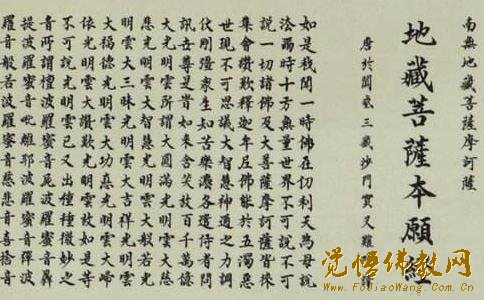 南無地藏菩薩摩訶薩
地藏菩薩本願經
唐於闐國三藏沙門實又難
如是我聞一時佛在忉利天為母說
法爾時十方無量世界不可說不可
說一切諸佛及大菩薩摩訶薩皆來
集會讚歎釋迦牟尼佛能於五濁惡
世現不可思議大智慧神通之力調
伏剛彊眾生知苦樂法各遣侍者問
訊世尊是時如來含笑放百千萬億
大光明雲所謂大圓滿光明雲大慈
悲光明雲大智慧光明雲大般若光
明雲大三昧光明雲大吉祥光明雲
大福德光明雲大功德光明雲大歸
依光明雲大讚歎光明雲放如是等
不可說光明雲已又出種種微妙之
音所謂檀波羅蜜音尸波羅蜜音羼
提波羅蜜音毗離耶波羅蜜音禪波
羅音般若波羅蜜音慈悲音喜捨音
觉悟佛教网
FoJiaoWang.Com.Cn